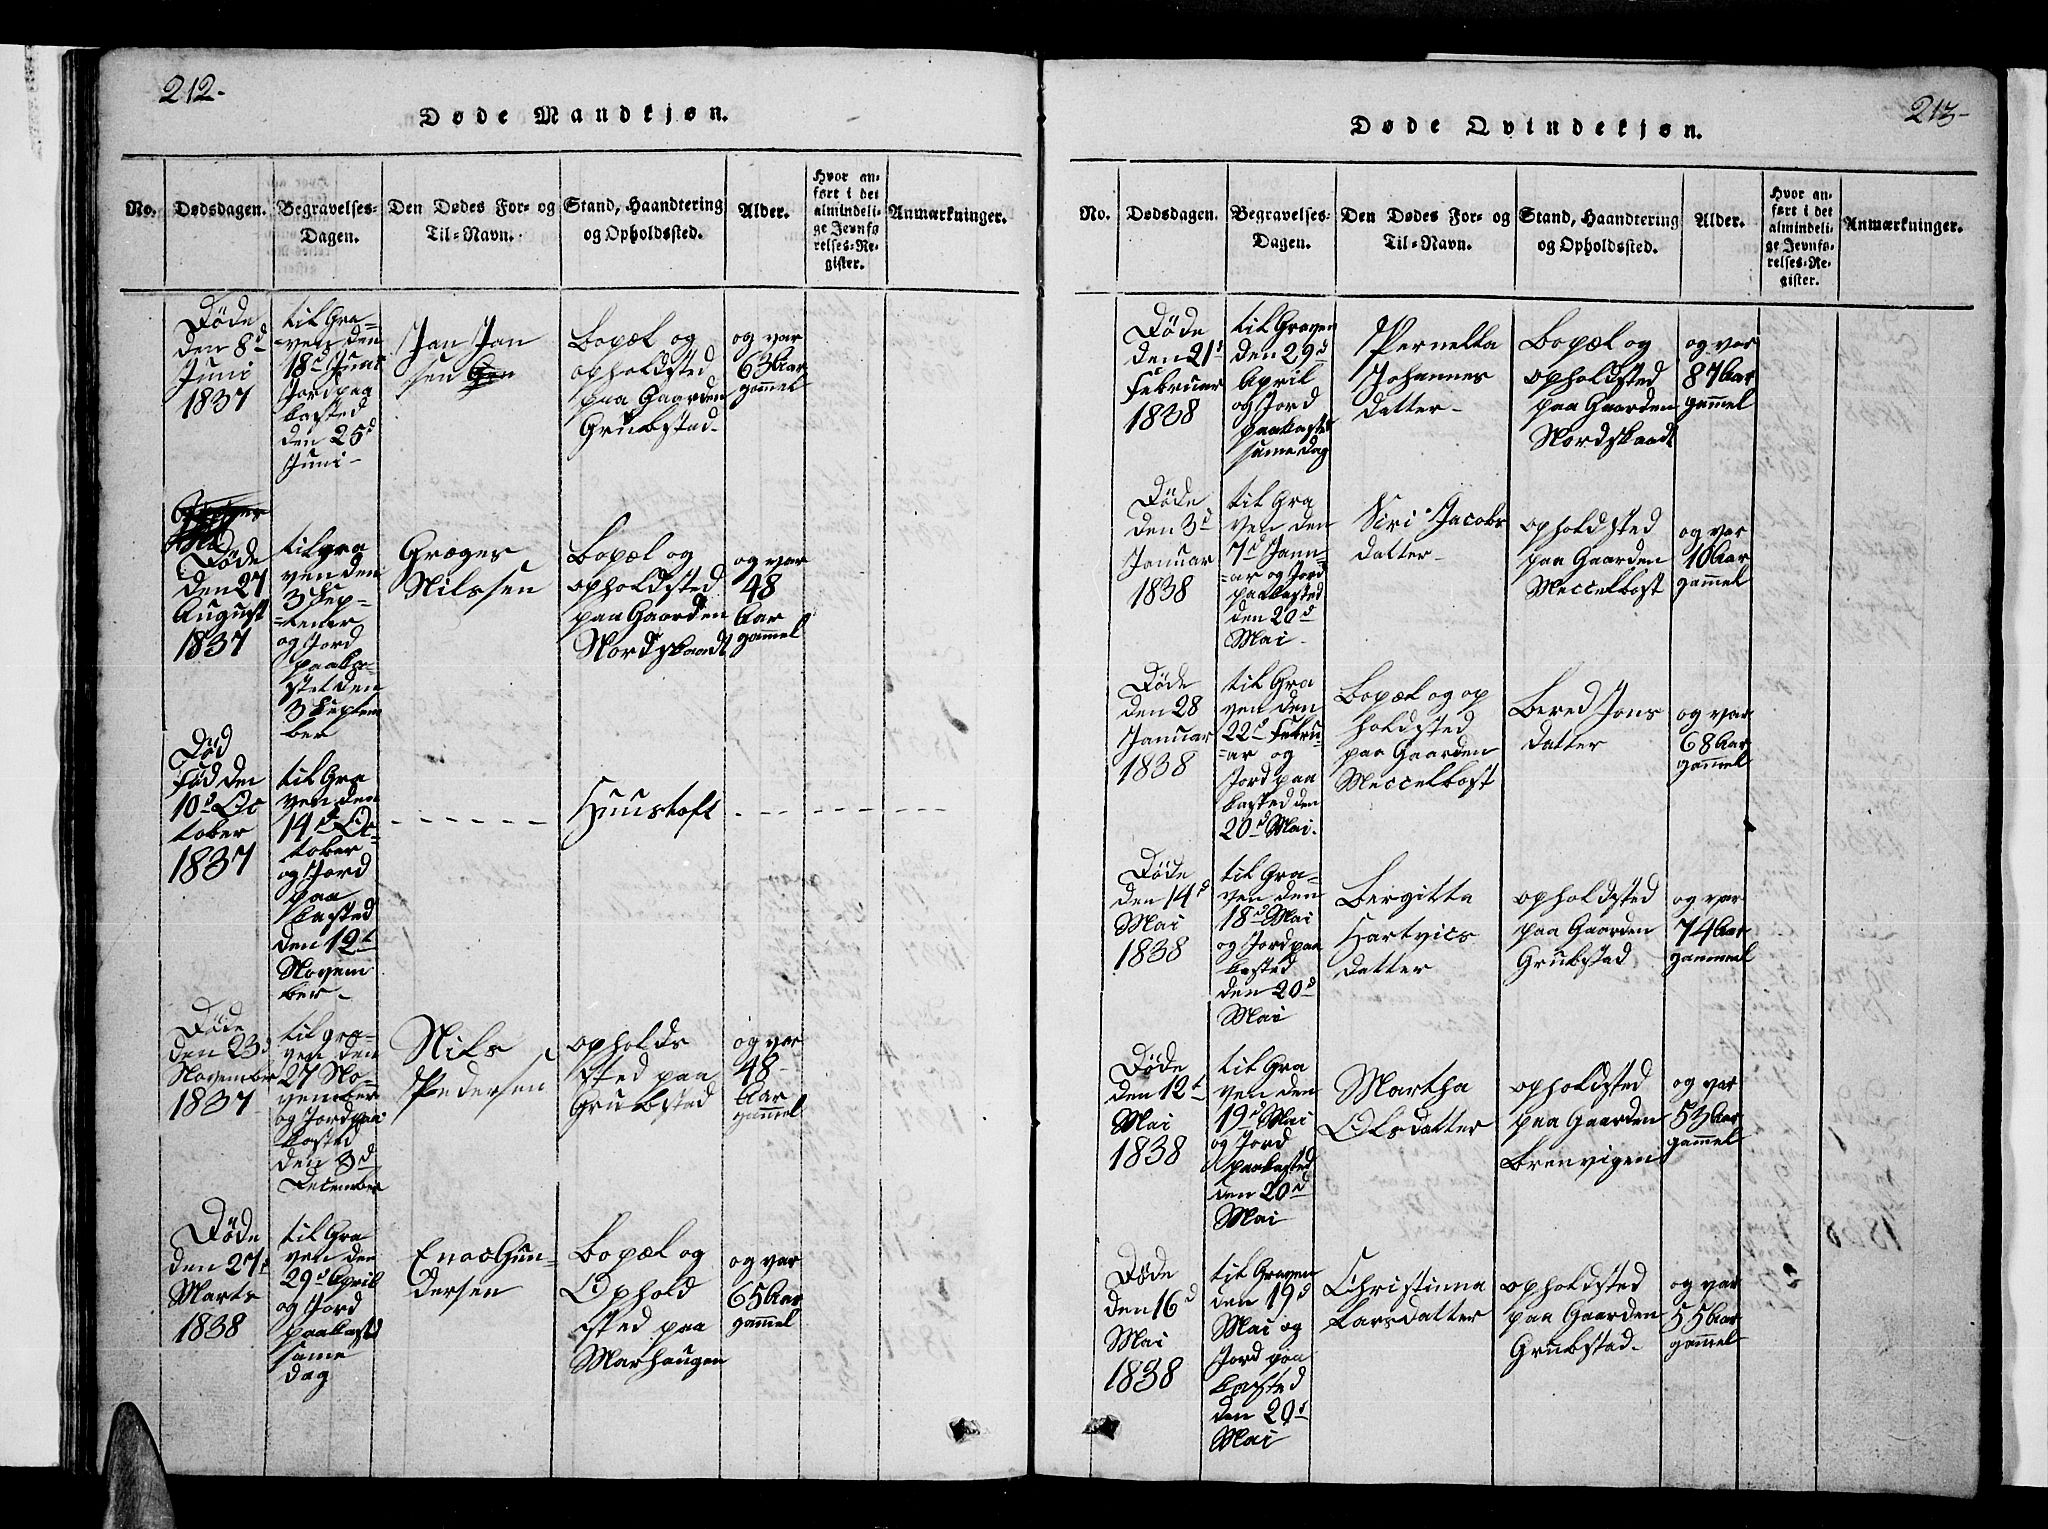 212.
Døde Mandkjøn.
No.
Dødsdagen.
Begravelses-
Dagen.
Den Dødes For- og
Til-Navn.
Stand, Haandtering
og Opholdssted.
Alder.
Hvor an-
ført i det
almindeli-
ge Jevnfø
relses-Re-
gister.
Anmærkninger.
Døde
den 8d
Juni
1837
til Gra-
ven den
18d Juni
Jord paa
kasted
den 25d
Juni-
Jan Jan
sen
Bopæl og
opholdsted
paa Gaarden
Grubstad.
og var
63 Aar
gammel
Døde
den 27
August
1837
til gra
ven den
3 Sep-
tember
og Jord
paaka-
sted den
3 Septem
ber
Græges
Nilssen
Bopæl og
opholdsted
paa Gaarden
Nordskaadt
og var
48
Aar
gammel
Død
fød den
10d Oc
tober
1837
til Gra
ven den
14d Oc-
tober
og Jord
paa
kasted
den 12t
Novem
ber-
Huustoft
Døde
den 23d
November
1837
til gra-
ven den
27 No-
vember
og Jord paa
kasted
den 3d
December
Nils
Pedersen
opholds
sted paa
Grubstad
og var
48
Aar
gammel
Døde
den 27t
Marts
1838
til Gra
ven den
29d April
og Jord
paakasted
same
dag
Enoc Gun-
dersen
Bopæl og
Ophold
sted paa
Marhaugen
og var
65 Aar
gammel
213-
Døde Qvindekjøn.
No.
Dødsdagen.
Begravelses-
Dagen.
Den Dødes For- og
Til-Navn.
Stand, Haandtering
og Opholdssted.
Alder.
Hvor an-
ført i det
almindeli-
ge Jevnfø-
relses-Re-
gister.
Anmærkninger.
Døde
den 21d
Februar
1838
til Graven
den 29d
April
og Jord
paakasted
same dag
Pernella
Johannes
datter-
Bopæl og
opholdsted
paa Gaarden
Nordskaadt
og var
87 Aar
gammel
Døde
den 3d
Januar
1838
til Gra
ven den
7d Janu-
ar og Jord
paakasted
den 20d
Mai-
Siri Jacobs
datter-
opholdsted
paa Gaarden
Meccelbost
og var
16 Aar
gammel
Døde
den 28
Januar
1838
til Gra
ven den
22d Febru-
ar og
Jord paa
kasted den
20d Mai.
Bopæl og op
holdsted
paa Gaarden
Meccelbost
Bered Jons
datter
og var
68 Aar
gammel
Døde
den 14d
Mai
1838
til Gra-
ven den
18d Mai
og Jord paa
kasted
den 20d
Mai
Bergitta
Hartvics
datter
opholdsted
paa Gaarden
Grubstad
og var
74 Aar
gammel
Døde
den 12t
Mai
1838
til Gra
ven den
19d Mai
og Jord
paakasted
den 20d
Mai
Martha
Olsdatter
opholdsted
paa Gaarden
Brenvigen
og var
53 Aar
gammel
Døde
den 16d
Mai
1838
til Graven
den 19d
Mai og
Jord paa
kasted
den 20d
Mai
Christinna
Larsdatter
opholdsted
paa Gaarden
Grubstad-
og var
55 Aar
gammel